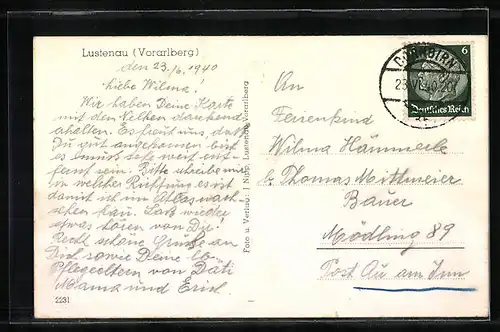 Lustenau (Vorarlberg)
den 23./6. 1940
Liebe Wilma!
Wir haben Deine Karte
mit den Nelken dankend
erhalten. Es freut uns, daß
Du gut angekommen bist
es muß sehr weit ent-
fernt sein. Bitte schreibe mir
in welcher Richtung es ist
damit ich im Atlas nach-
sehen kann. Laß wieder
etwas hören von Dir!
Recht schöne Grüße an
Dich sowie Deine lb.
Pflegeeltern von Dati
Mama und Erich.
2231
Foto u. Verlag: J. Lustenau, Vorarlberg
6
Deutsches Reich
An
Ferienkind
Wilma Hämmerle
b. Thomas Mittmeier
Bauer
Mödling 89
Post Au am Inn